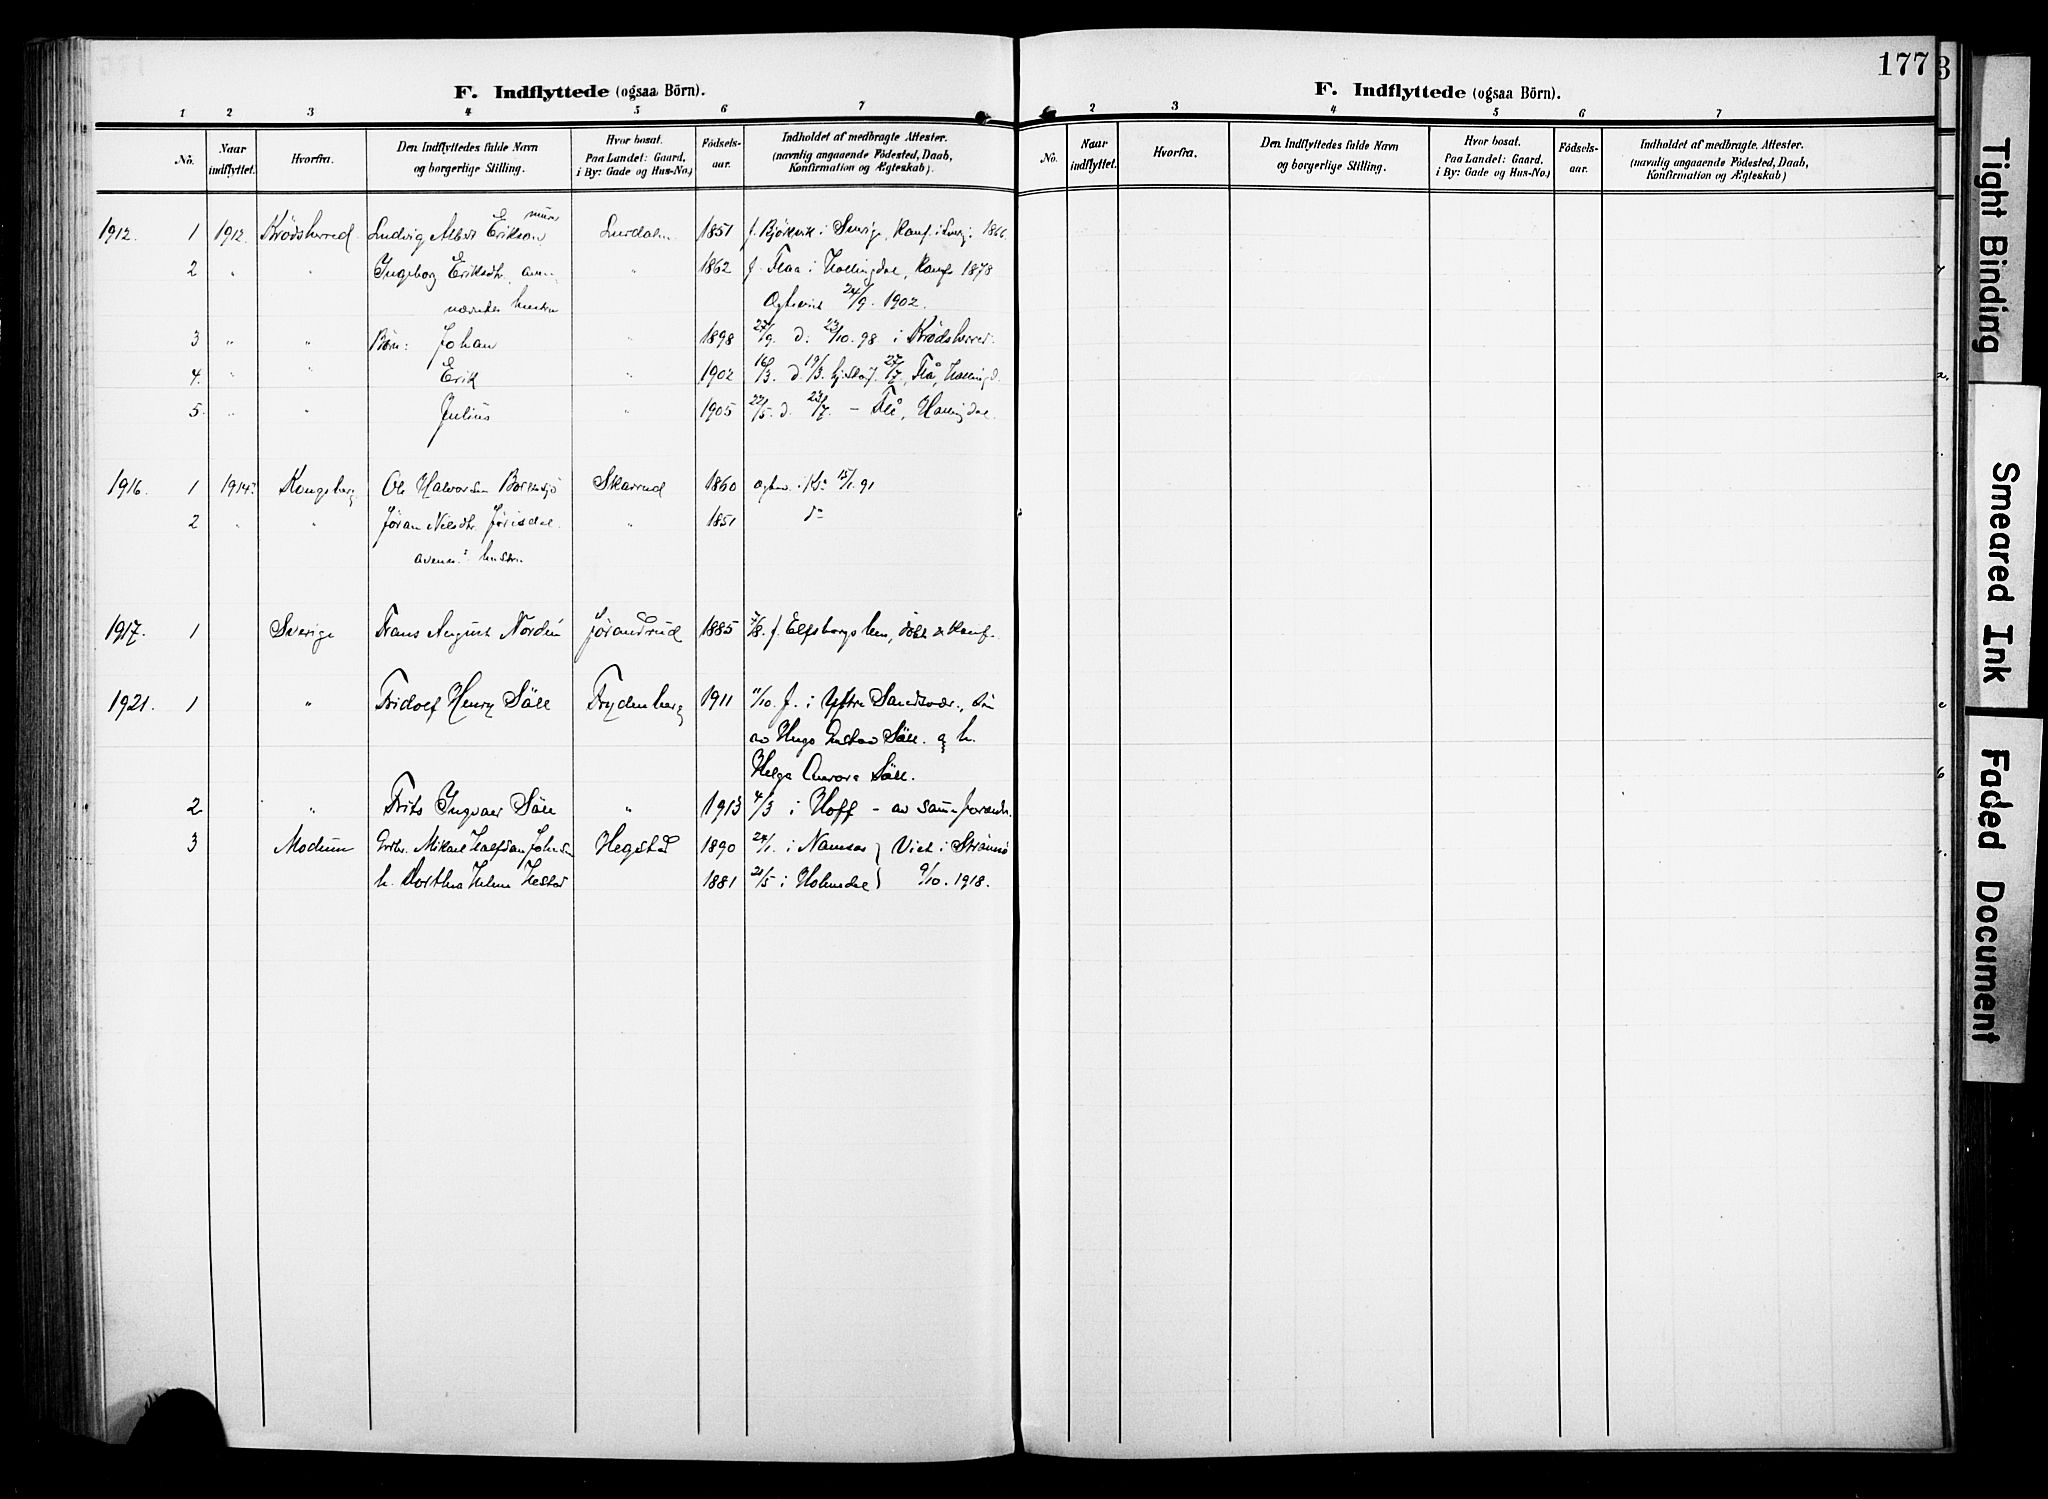 F. Indflyttede (ogsaa Börn).
1 2 3 4 5 6 7
No. Naar indflyttet. Hvorfra. Den Indflyttedes fulde Navn og borgerlige Stilling. Hvor bosat. Paa Landet: Gaard, i By: Gade og Hus-No.) Födsels-aar. Indholdet af medbragte Attester. (navnlig angaaende Födested, Daab, Konfirmation og Ægteskab).
1912. 1 1912. Krødsherred Ludvig Albert Erikson murer 1851 f. i Sverige, Konf. i 1866
2 " " Ingeborg Eriksdtr. " 1862 f. Flaa i Hallingdal, Konf 1878
hustru 24/9. 1902.
3 " " Børn: Johan " 1898 27/9. d. 23/10. 98 i Krødsherred
4. " " Erik " 1902 16/3. d 19/3. 27/7., Flå, Hallingd.
5. " " Julius " 1905 22/5. d. 23/7. – Flå, Hallingdal.
1916. 1 1914 Kongsberg Ole Halvorsen Skarrud 1860 15/1. 91
2 " " Jøran Nilsdtr. " 1851 do
hustru
1917. 1 Sverige Frans August Nordin Jørandrud 1885 7/8. f. Elfsborgs len, døbt & konf.
1921. 1 " Fridolf Henry Säll Frydenberg 1911 11/10. f. i Ytre Sandsvær.,
av Hugo Gustav Säll. og h.
Helga Aurora Säll.
2 " Frits Ingvar Säll " 1913 4/3 i Hoff – av samme
3 Modum Mikael Halfdan Johnsen Hegstad 1890 24/1. i Namsos } Viet i Strømsø
h. Dorthea Helene Hestad 1881 21/5 i Holmsdal } 9/10. 1918.
177
F. Indflyttede (ogsaa Börn).
2 3 4 5 6 7
No. Naar indflyttet. Hvorfra. Den Indflyttedes fulde Navn og borgerlige Stilling. Hvor bosat. Paa Landet: Gaard, i By: Gade og Hus-No.) Födsels-aar. Indholdet af medbragte Attester. (navnlig angaaende Födested, Daab, Konfirmation og Ægteskab)
3
Tight Binding
Smeared Ink
Faded Document